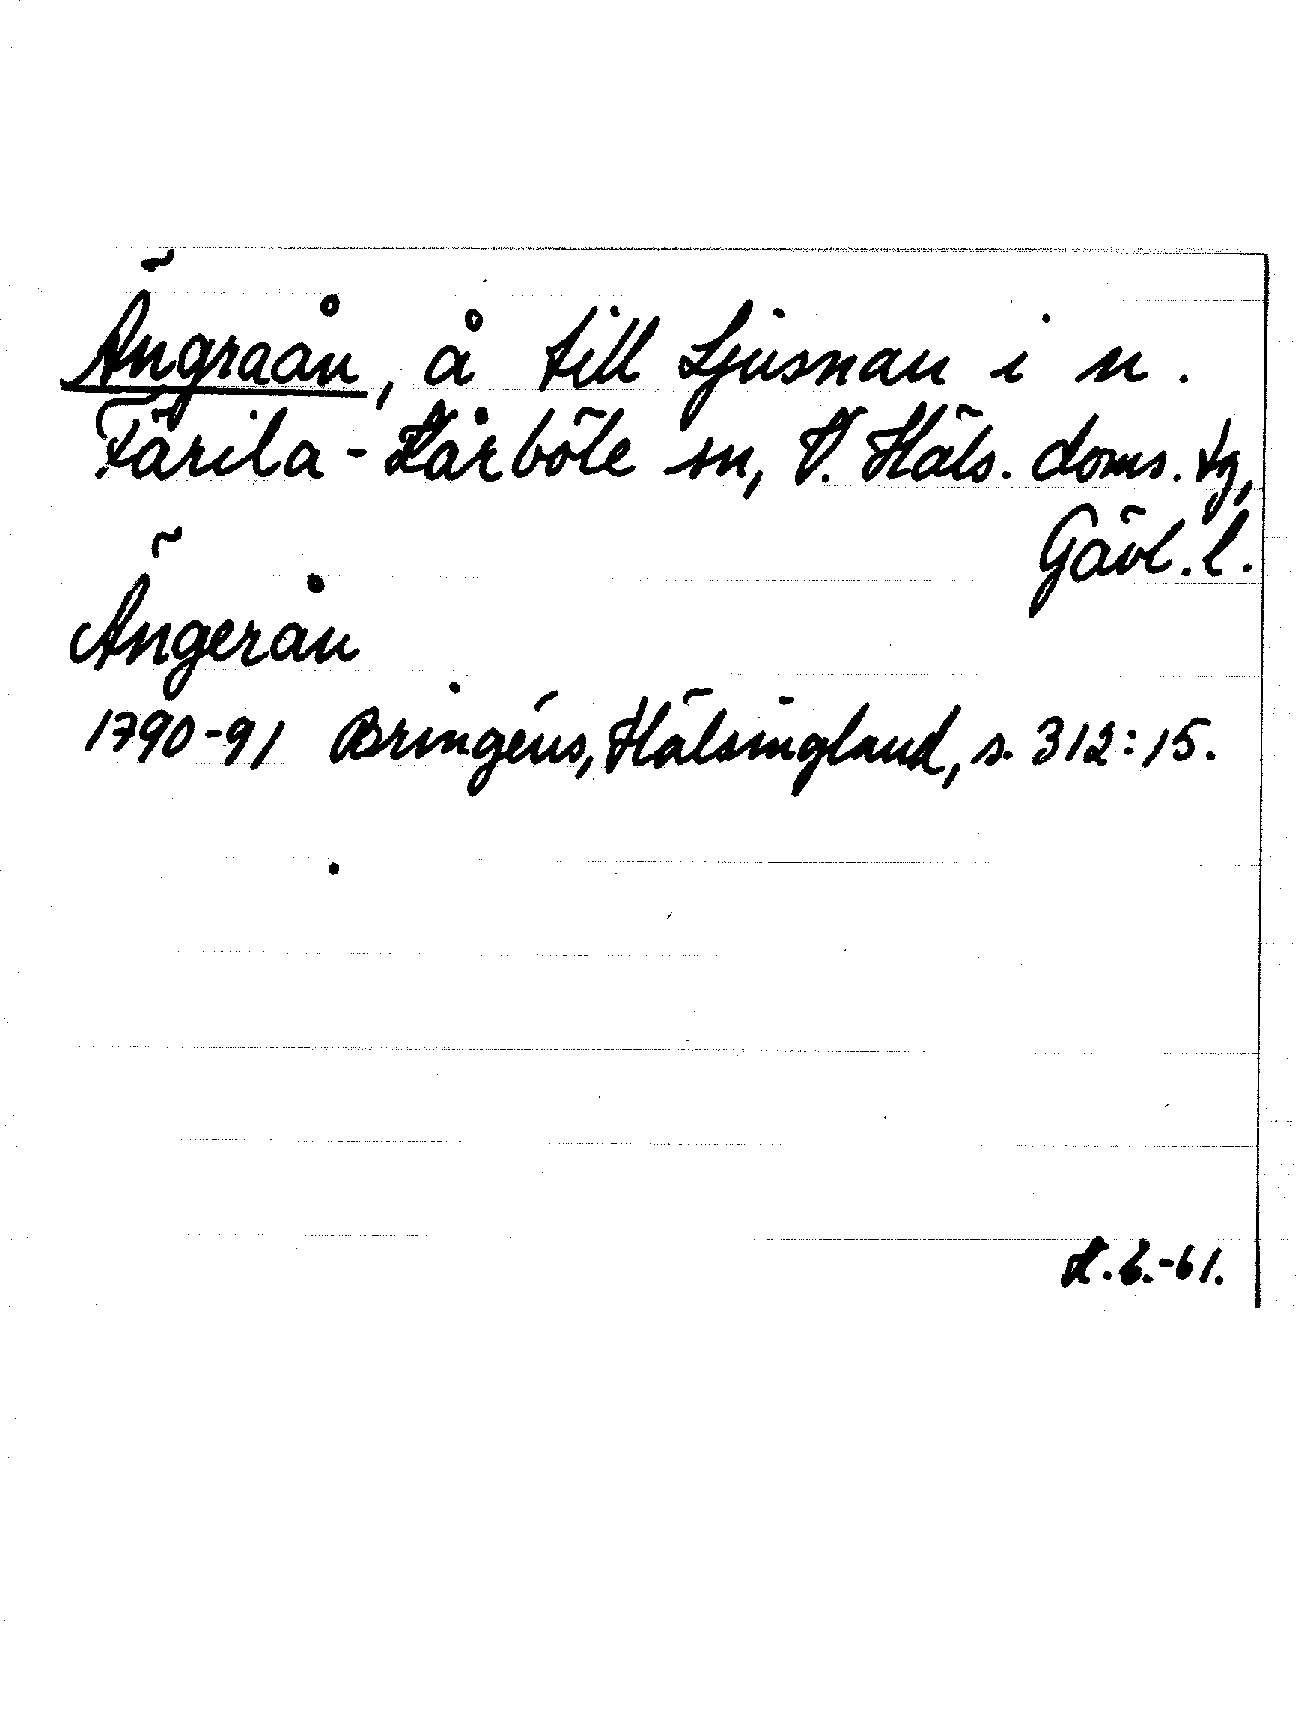 Ängraån, å till Ljusnan i n.
Färila-Kårböle sn, V. Häls. doms. tg,
Gävl. l.
Ängerån
1790-91 Bringéus, Hälsingland, s. 312:15.